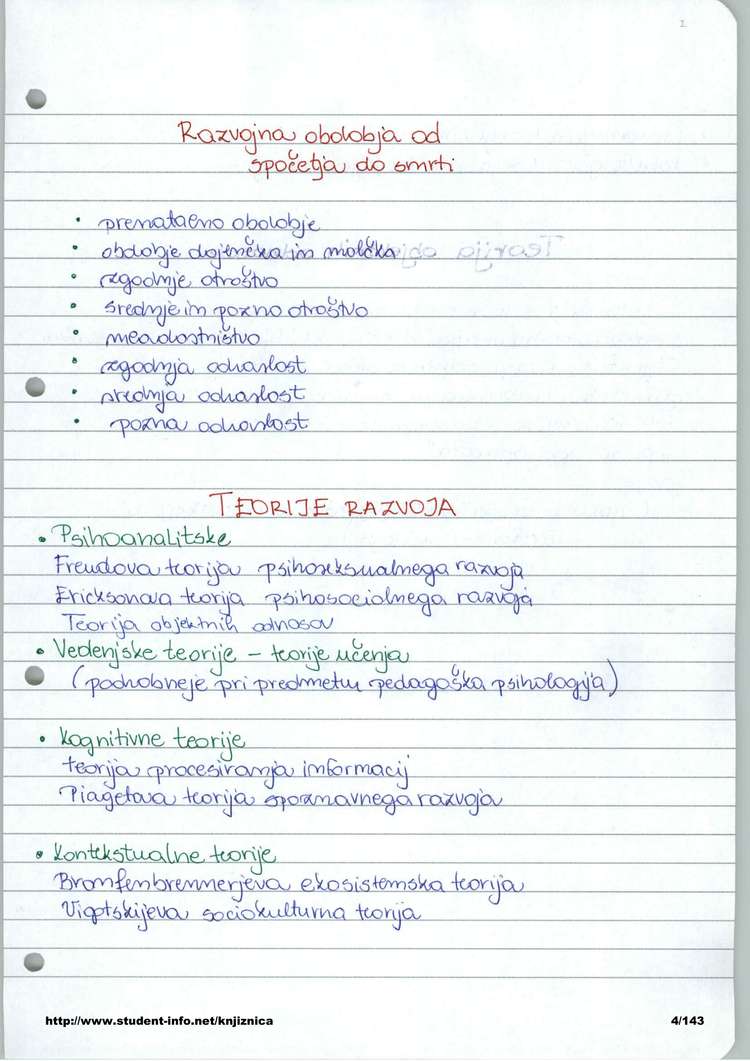 1
Razvojna obdobja od
spočetja do smrti
• prenatalno obdobje
• obdobje dojenčka in malčka
• zgodnje otroštvo
• srednje in pozno otroštvo
• mladostništvo
• zgodnja odraslost
• srednja odraslost
• pozna odraslost
TEORIJE RAZVOJA
• Psihoanalitske
Freudova teorija psihoseksualnega razvoja
Ericksonova teorija psihosocialnega razvoja
Teorija objektnih odnosov
• Vedenjske teorije - teorije učenja
(podrobneje pri predmetu pedagoška psihologija)
• Kognitivne teorije
teorija procesiranja informacij
Piagetova teorija spoznavnega razvoja
• Kontekstualne teorije
Bronfenbrennerjeva ekosistemska teorija
Vigotskijeva sociokulturna teorija
http://www.student-info.net/knjiznica 4/143